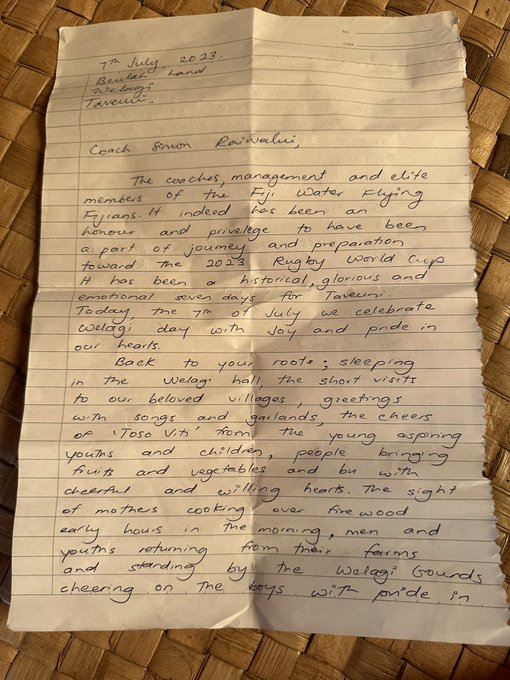 7th July 2023.
Beulah Land
Welagi
Taveuni.
Coach Simon Raiwalui,
The coaches, management and elite
members of the Fiji Water Flying
Fijians. It indeed has been an
honour and privelege to have been
a part of journey and preparation
toward the 2023 Rugby World Cup
It has been a historical, glorious and
emotional seven days for Taveuni.
Today, the 7th of July we celebrate
Welagi day with Joy and pride in
our hearts.
Back to your roots; sleeping
in the Welagi hall, the short visits
to our beloved villages, greetings
with songs and garlands, the cheers
of 'Toso Viti' from the young aspiring
youths and children, people bringing
fruits and vegetables and bu with
cheerful and willing hearts. The sight
of mothers cooking over firewood
early hours in the morning, men and
youths returning from their farms
and standing by the Welagi Gounds
cheering on the boys with pride in